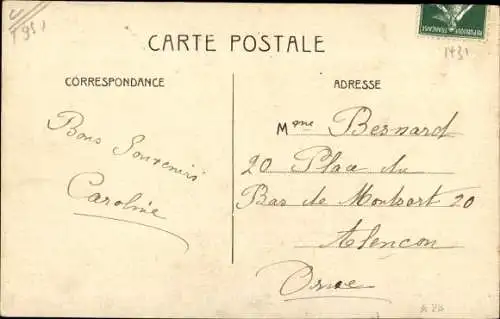 CARTE POSTALE
CORRESPONDANCE
Bons Souvenirs
Caroline
ADRESSE
Mme Besnard
20 Place du
Bas de Montsort 20
Alençon
Orne
REPUBLIQUE FRANÇAISE
1431